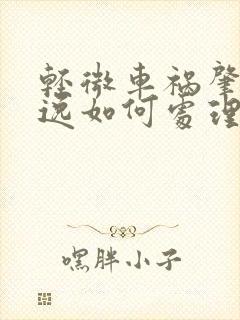 輕微車禍肇
逃如何處理
嘿胖小子